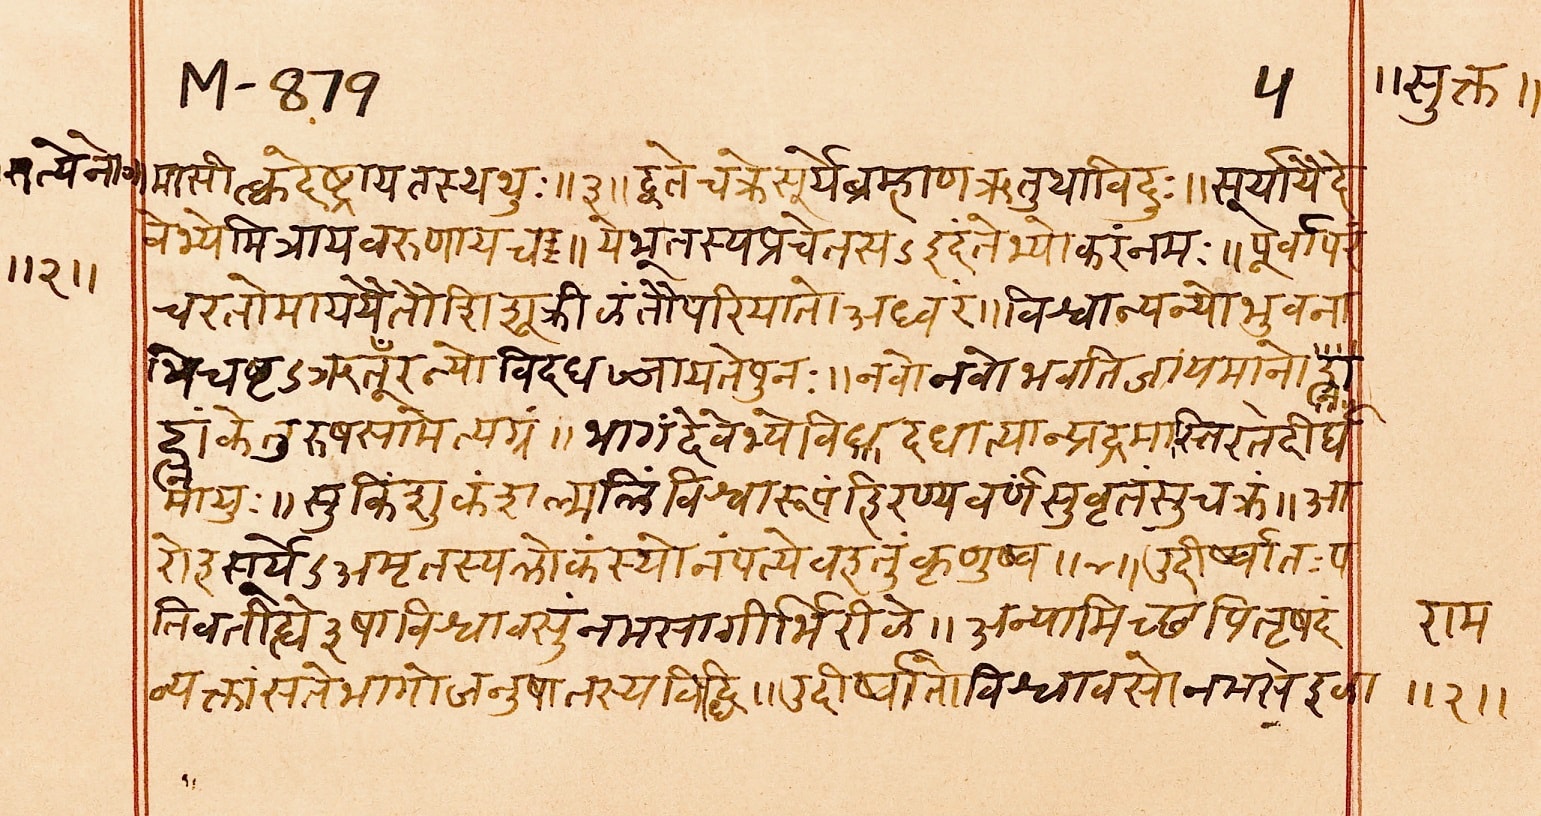 M-879
4
॥सुक्त॥
सत्येनो॰॥
॥२॥
मासीत्क्वदेष्ट्रायतस्थथुः॥३॥द्वेतेचक्रेसूर्येब्रम्हाणऋतुथाविदुः॥सूर्यायैदे
वेभ्योमित्रायवरुणायच॥येभूतस्यप्रचेतसऽइदंतेभ्योकरंनमः॥पूर्वापरं
चरतोमाययैतौशिशूक्रीळंतौपरियातोअध्वरं॥विश्वान्यन्योभुवना
भिचष्टऽऋतूँरन्योविदधज्जायतेपुनः॥नवोनवोभवतिजायमानोह्ना
ह्नांकेतुरुषसामेत्यग्रं॥भागंदेवेभ्योविदधात्यान्प्रद्रमास्तिरतेदीर्घ
मायुः॥सुकिंशुकंशल्मलिंविश्वारूपंहिरण्यवर्णंसुवृतंसुचक्रं॥आ
रोहसूर्येऽअमृतस्यलोकंस्योनंपत्येवहतुंकृणुष्व॥४॥उदीर्ष्वातःप
तिवतीह्येषाविश्वावसुंनमसागीर्भिरीळे॥अन्यामिच्छपितृषदं
व्यक्तांसतेभागोजनुषातस्यविद्धि॥उदीर्ष्वातोविश्वावसोनमसेळा
राम
॥२॥